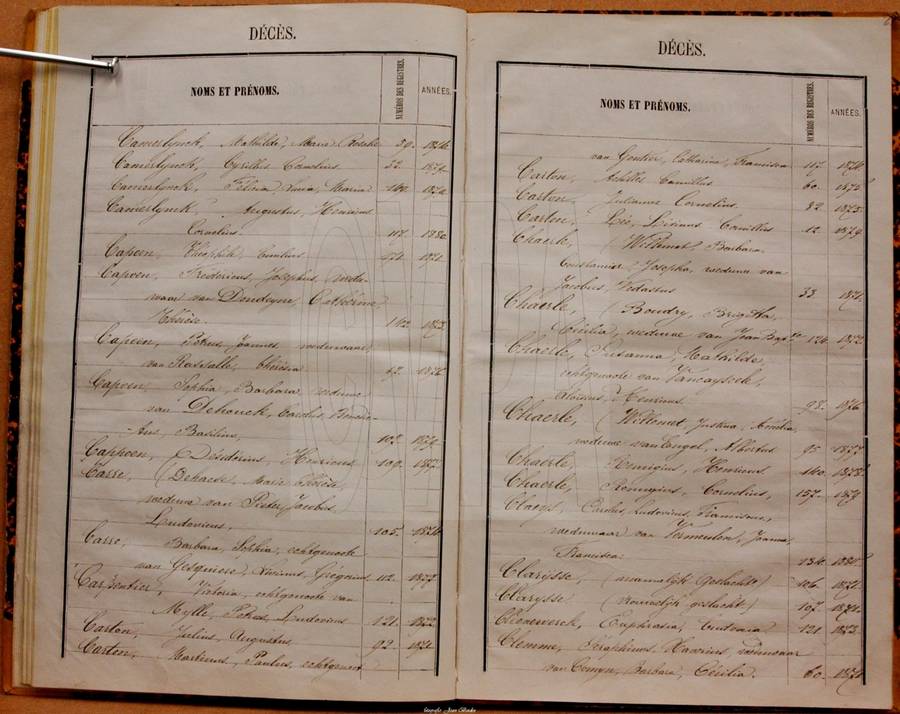 DÉCÈS.
NOMS ET PRÉNOMS.
NUMÉROS DES REGISTRES.
ANNÉES.
Camerlynck, Mathilde, Maria Rosalie 1876
Camerlynck, Cyrillus Cornelius 22. 1879
Camerlynck, Maria 1879
Camerlynck Augustus, Henricus
Cornelius. 117 1880
Capoen, Theophile, Camillus 1871
Capoen, Fredericus, Josephus, wede-
waar van Dondeyne, Cathérine
Thérèse. 142 1872
Capoen, Petrus Joannes wedewaar
van Thérésia 1876
Capoen Sophia, Barbara, weduwe
van Dehouck, Carolus,
Basilius, 102. 1879
Cappoen, Désidérius, Henricus 109. 1872
Carre, (Dehaese, Marie Thérésia,
weduwe van Pieter Jacobus,
Ludovicus, 105. 1876
Carre, Barbara, Sophia, echtgenoote
van Gesquiere, Livinus, Grégorius 112. 1872
Carpentier, Victoria, echtgenoote van
Mylle, Petrus Ludovicus 121. 1872
Carton, Julius, Augustus, 92. 1871
Carton, Martinus, Paulus, echtgenoot
DÉCÈS.
NOMS ET PRÉNOMS.
NUMÉROS DES REGISTRES.
ANNÉES.
van Gontier, Catharina, Francisca 117.
Carton, Achilles Camillus 60. 1875
Carton, Julianus Cornelius. 82 1875
Carton, Léo, Livinus Camillus 12 1879
Chaerle, (Willemet, Barbara
Constancia Josepha, weduwe van
Jacobus, Vedastus 33. 1871
Chaerle, (Boudry, Brigitta,
Cécilia, weduwe van Jean Bapte 126 1872
Chaerle, Susanna, Mathilde,
echtgenoote van Vancayseele,
Aloisius, Henricus. 98. 1876
Chaerle, (Willemet, Justina, Amélia,
weduwe van Engel, Albertus 95 1877
Chaerle, Remigius, Henricus 140 1878
Chaerle, Remigius, Cornelius, 157. 1879
Carolus, Ludovicus, Franciscus,
wedewaar van Vermeulen, Joanna
Francisca. 1880
Clarysse, (mannelijk geslacht) 106. 1871
Clarysse (manelijk geslacht) 107. 1871
Clenewerck, Euphrasia, Ludovica 121 1872
Clemme, Séraphinus, Xaverius, wedewaar
van Comyn, Barbara, Cécilia. 60. 1871